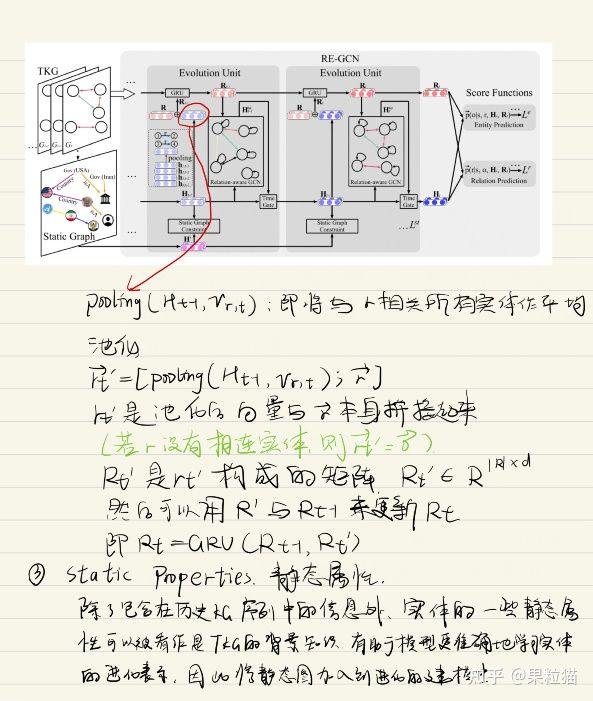 RE-GCN
TKG
Evolution Unit
Evolution Unit
Score Functions
GRU
GRU
Entity Prediction
pooling
Relation-aware GCN
Relation-aware GCN
Relation Prediction
Time Gate
Time Gate
Gov (USA)
Gov (Iran)
Country
Country
Static Graph
Static Graph Constraint
Static Graph Constraint
pooling(Ht-1, Vr,t)：即将与r相关所有实体作平均
池化
r⃗t'=[pooling(Ht-1, Vr,t); r⃗]
rt'是池化后向量与r⃗本身拼接起来
(若r没有相连实体,则r⃗t'=0⃗)
Rt'是rt'构成的矩阵, Rt'∈R^|R|×d
然后可以用R'与Rt-1来更新Rt
即Rt=GRU(Rt-1, Rt')
③ Static Properties. 静态属性.
除了包含在历史KG序列中的信息外,实体的一些静态属
性可以被看作是TKG的背景知识,有助于模型更准确地学习实体
的进化表示,因此将静态图加入到进化的建模中
知乎 @果粒猫